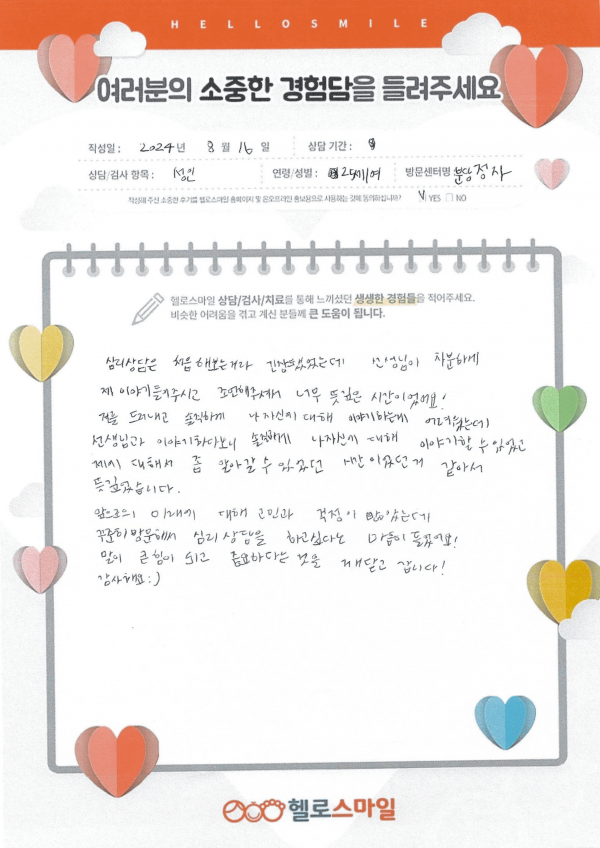 HELLOSMILE
여러분의 소중한 경험담을 들려주세요
작성일 : 2024년 8월 16일 상담 기간 :
상담/검사 항목 : 성인 연령/성별 : 25세/여 방문센터명 분당정자
작성해 주신 소중한 후기를 헬로스마일 홈페이지 및 온오프라인 홍보용으로 사용하는 것에 동의하십니까? V YES □ NO
헬로스마일 상담/검사/치료를 통해 느끼셨던 생생한 경험들을 적어주세요.
비슷한 어려움을 겪고 계신 분들께 큰 도움이 됩니다.
심리상담은 처음 해보는거라 긴장했었는데 선생님이 차분하게
제 이야기 들어주시고 조언해주셔서 너무 뜻깊은 시간이었어요!
저를 드러내고 솔직하게 나 자신에 대해 이야기하는게 어려웠는데
선생님과 이야기하다보니 솔직하게 나자신에 대해 이야기할 수 있었고
제에 대해서 좀 알아갈 수 있었던 시간이었던거 같아서
뜻깊었습니다.
앞으로의 미래에 대해 고민과 걱정이 많았는데
꾸준히 방문해서 심리 상담을 하고싶다는 마음이 들었어요!
말이 큰 힘이 되고 중요하다는 것을 깨닫고 갑니다!
감사해요 :)
헬로스마일